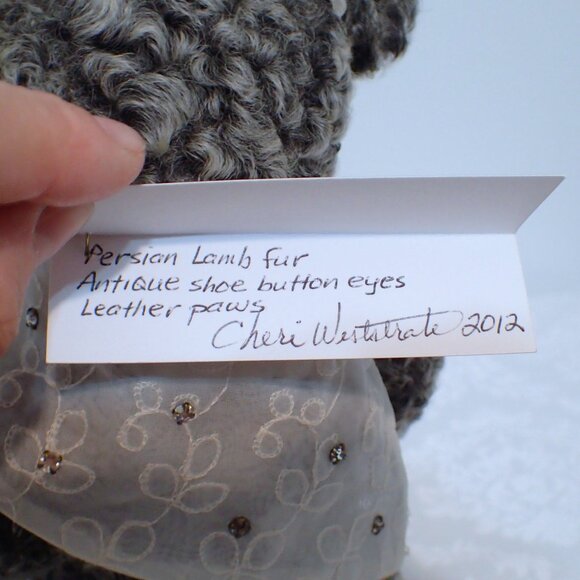 Persian Lamb fur
Antique shoe button eyes
Leather paws
Cheri Weststrate 2012